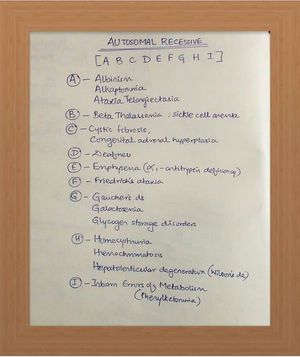 AUTOSOMAL RECESSIVE
[A B C D E F G H I]
A - Albinism
Alkaptonuria
Ataxia Telangiectasia
B - Beta Thalassemia ; sickle cell anemia
C - Cystic fibrosis,
Congenital adrenal hyperplasia
D - Deafness
E - Emphysema (α1-antitrypsin deficiency)
F - Friedrich's ataxia
G - Gaucher's ds
Galactosemia
Glycogen storage disorders
H - Homocystinuria
Hemochromatosis
Hepatolenticular degeneration (Wilson's ds)
I - Inborn Errors of Metabolism
(Phenylketonuria)